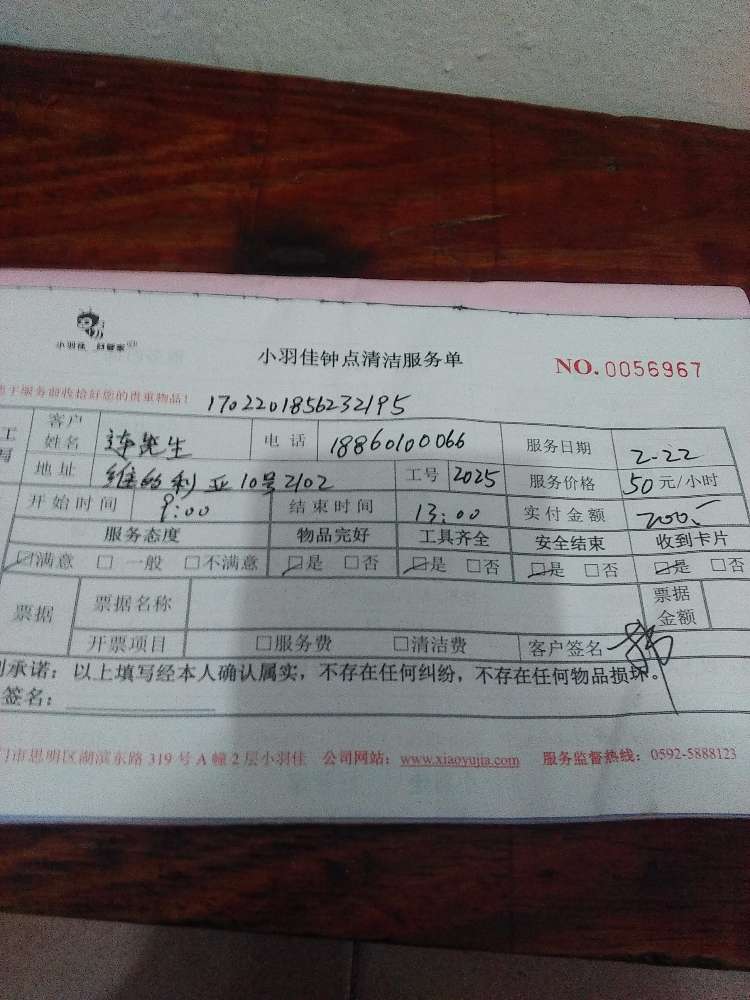 小羽佳 好管家
小羽佳钟点清洁服务单 NO.0056967
于服务前收拾好您的贵重物品! 1702201856232195
客户姓名 连先生 电话 18860100066 服务日期 2-22
地址 维多利亚10号2102 工号 2025 服务价格 50元/小时
开始时间 9:00 结束时间 13:00 实付金额 200.-
服务态度 物品完好 工具齐全 安全结束 收到卡片
☑满意 □一般 □不满意 ☑是 □否 ☑是 □否 ☑是 □否 ☑是 □否
票据 票据名称 票据金额
开票项目 □服务费 □清洁费 客户签名
承诺：以上填写经本人确认属实，不存在任何纠纷，不存在任何物品损坏。
签名：
门市思明区湖滨东路 319 号 A 幢 2 层小羽佳 公司网站：www.xiaoyujia.com 服务监督热线：0592-5888123